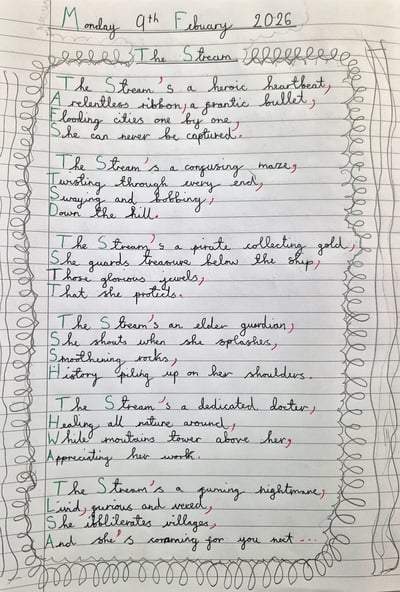 Monday 9th Febuary 2026
The Stream
The Stream's a heroic heartbeat,
A relentless ribbon, a frantic bullet,
Flooding cities one by one,
She can never be captured.
The Stream's a confusing maze,
Twisting through every end,
Swaying and bobbing,
Down the hill.
The Stream's a pirate collecting gold,
She guards treasure below the ship,
Those glorious jewels,
That she protects.
The Stream's an elder guardian,
She shouts when she splashes,
Smoothening rocks,
History piling up on her shoulders.
The Stream's a dedicated doctor,
Healing all nature around,
While moutains tower above her,
Appreciating her work.
The Stream's a fuming nightmare,
Livid, furious and vexed,
She obliterates villages,
And she's comming for you next ...